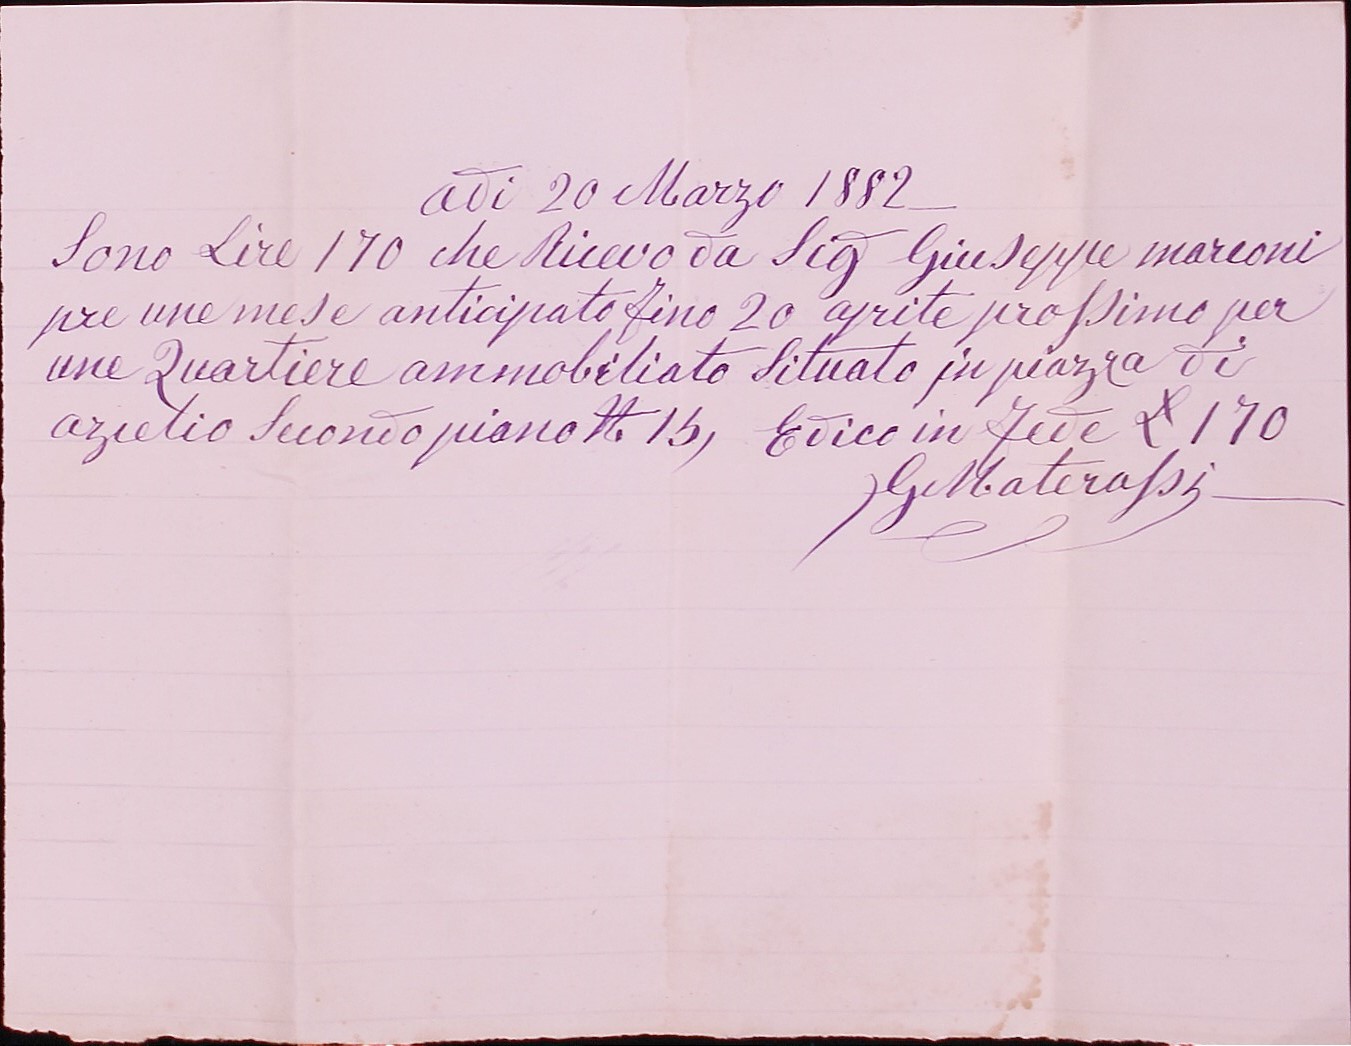 adi 20 Marzo 1882
Sono Lire 170 che Ricevo da Sig Giuseppe marconi
pre une mese anticipato fino 20 aprile prossimo per
une Quartiere ammobiliato Situato in piazza di
azielio Secondo piano N 15, E dico in fede £ 170
G Materassi